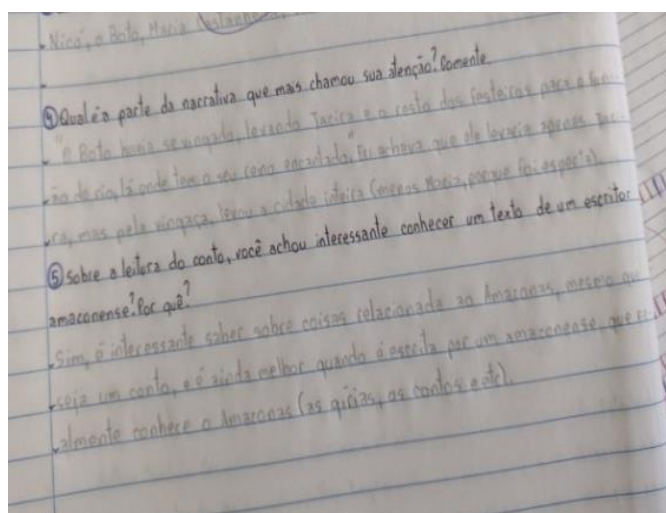 Nico, o Boto, Maria
④ Qual é a parte da narrativa que mais chamou sua atenção? Comente.
"o Boto havia se vingado, levando Jacira e o resto dos festeiros para o fun-
do do rio, lá onde tem o seu reino encantado." Eu achava que ele levaria apenas Jaci-
ra, mas pela vingaça, levou a cidade inteira (menos Maria, porque foi esperta).
⑤ Sobre a leitora do conto, você achou interessante conhecer um texto de um escritor
amaconense? Por quê?
Sim, é interessante saber sobre coisas relacionada ao Amazonas, mesmo que
seja um conto, e é ainda melhor quando é escrita por um amaconense, que re-
almente conhece o Amazonas (as gírias, os contos e etc).